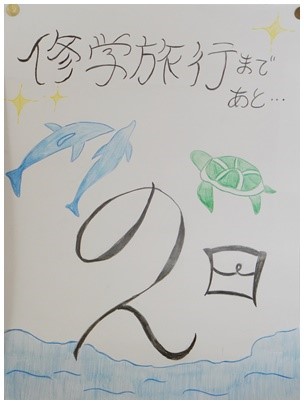 修学旅行まで
あと…
2日